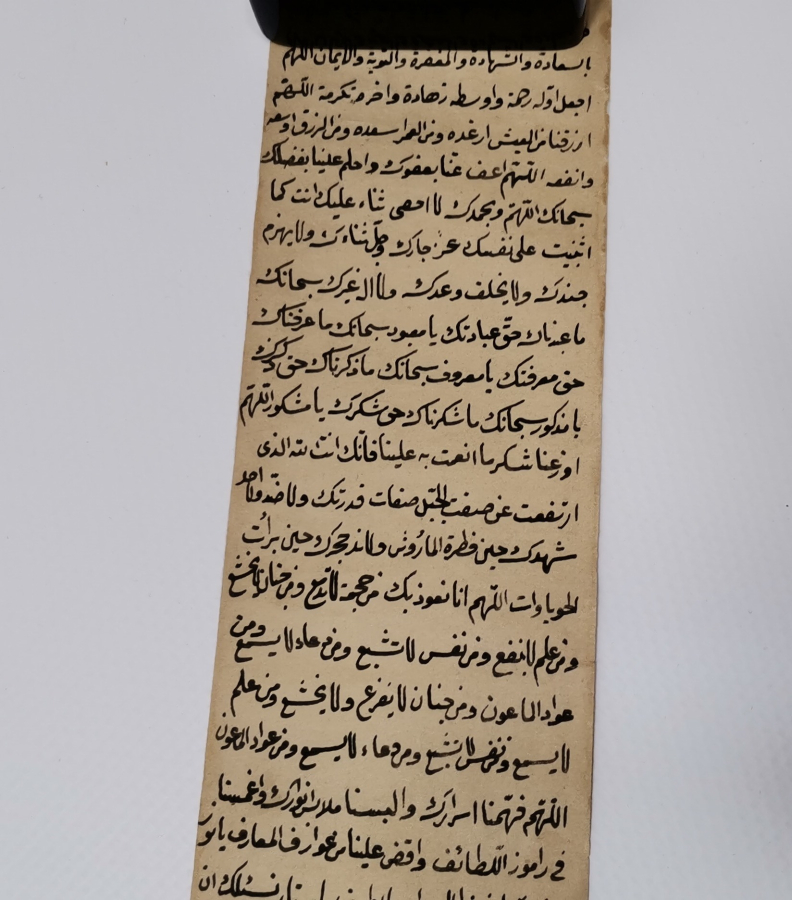 بالسعادة والشهادة والمغفرة والتوبة والايمان اللهم
اجعل اوله رحمة واوسطه زهادة واخره تكرمة اللهم
ارزقنا من العيش ارغده ومن العمر اسعده ومن الرزق اوسعه
وانفعه اللهم اعف عنا بعفوك واحلم علينا بفضلك
سبحانك اللهم وبحمدك لا احصى ثناء عليك انت كما
اثنيت على نفسك عز جارك وجل ثناءك ولا يهزم
جندك ولا يخلف وعدك ولا اله غيرك سبحانك
ما عبدناك حق عبادتك يا معبود سبحانك ما عرفناك
حق معرفتك يا معروف سبحانك ما ذكرناك حق ذكرك
يا مذكور سبحانك ما شكرناك حق شكرك يا مشكور اللهم
اوزعنا شكر ما انعمت به علينا فانك انت الله الذى
ارتفعت عن صفة الجبل صفات قدرتك ولا ضد واحد
شهدك حين فطرة الماروش ولا ند حجرك حين برأت
الحوباوات اللهم انا نعوذ بك من حجمة لا تدمع ومن جنان لا يخشع
ومن علم لا ينفع ومن نفس لا تشبع ومن دعاء لا يسمع ومن
عواد الماعون ومن جنان لا يفزع ولا يخشع ومن علم
لا يسمع ومن نفس لا تشبع ومن دعاء لا يسمع ومن عواد الماعون
اللهم فهمنا اسرارك والبسنا ملابس انوارك واغمسنا
فى راموز اللطائف واقض علينا من عوارف المعارف يا نور
نسئلك ان